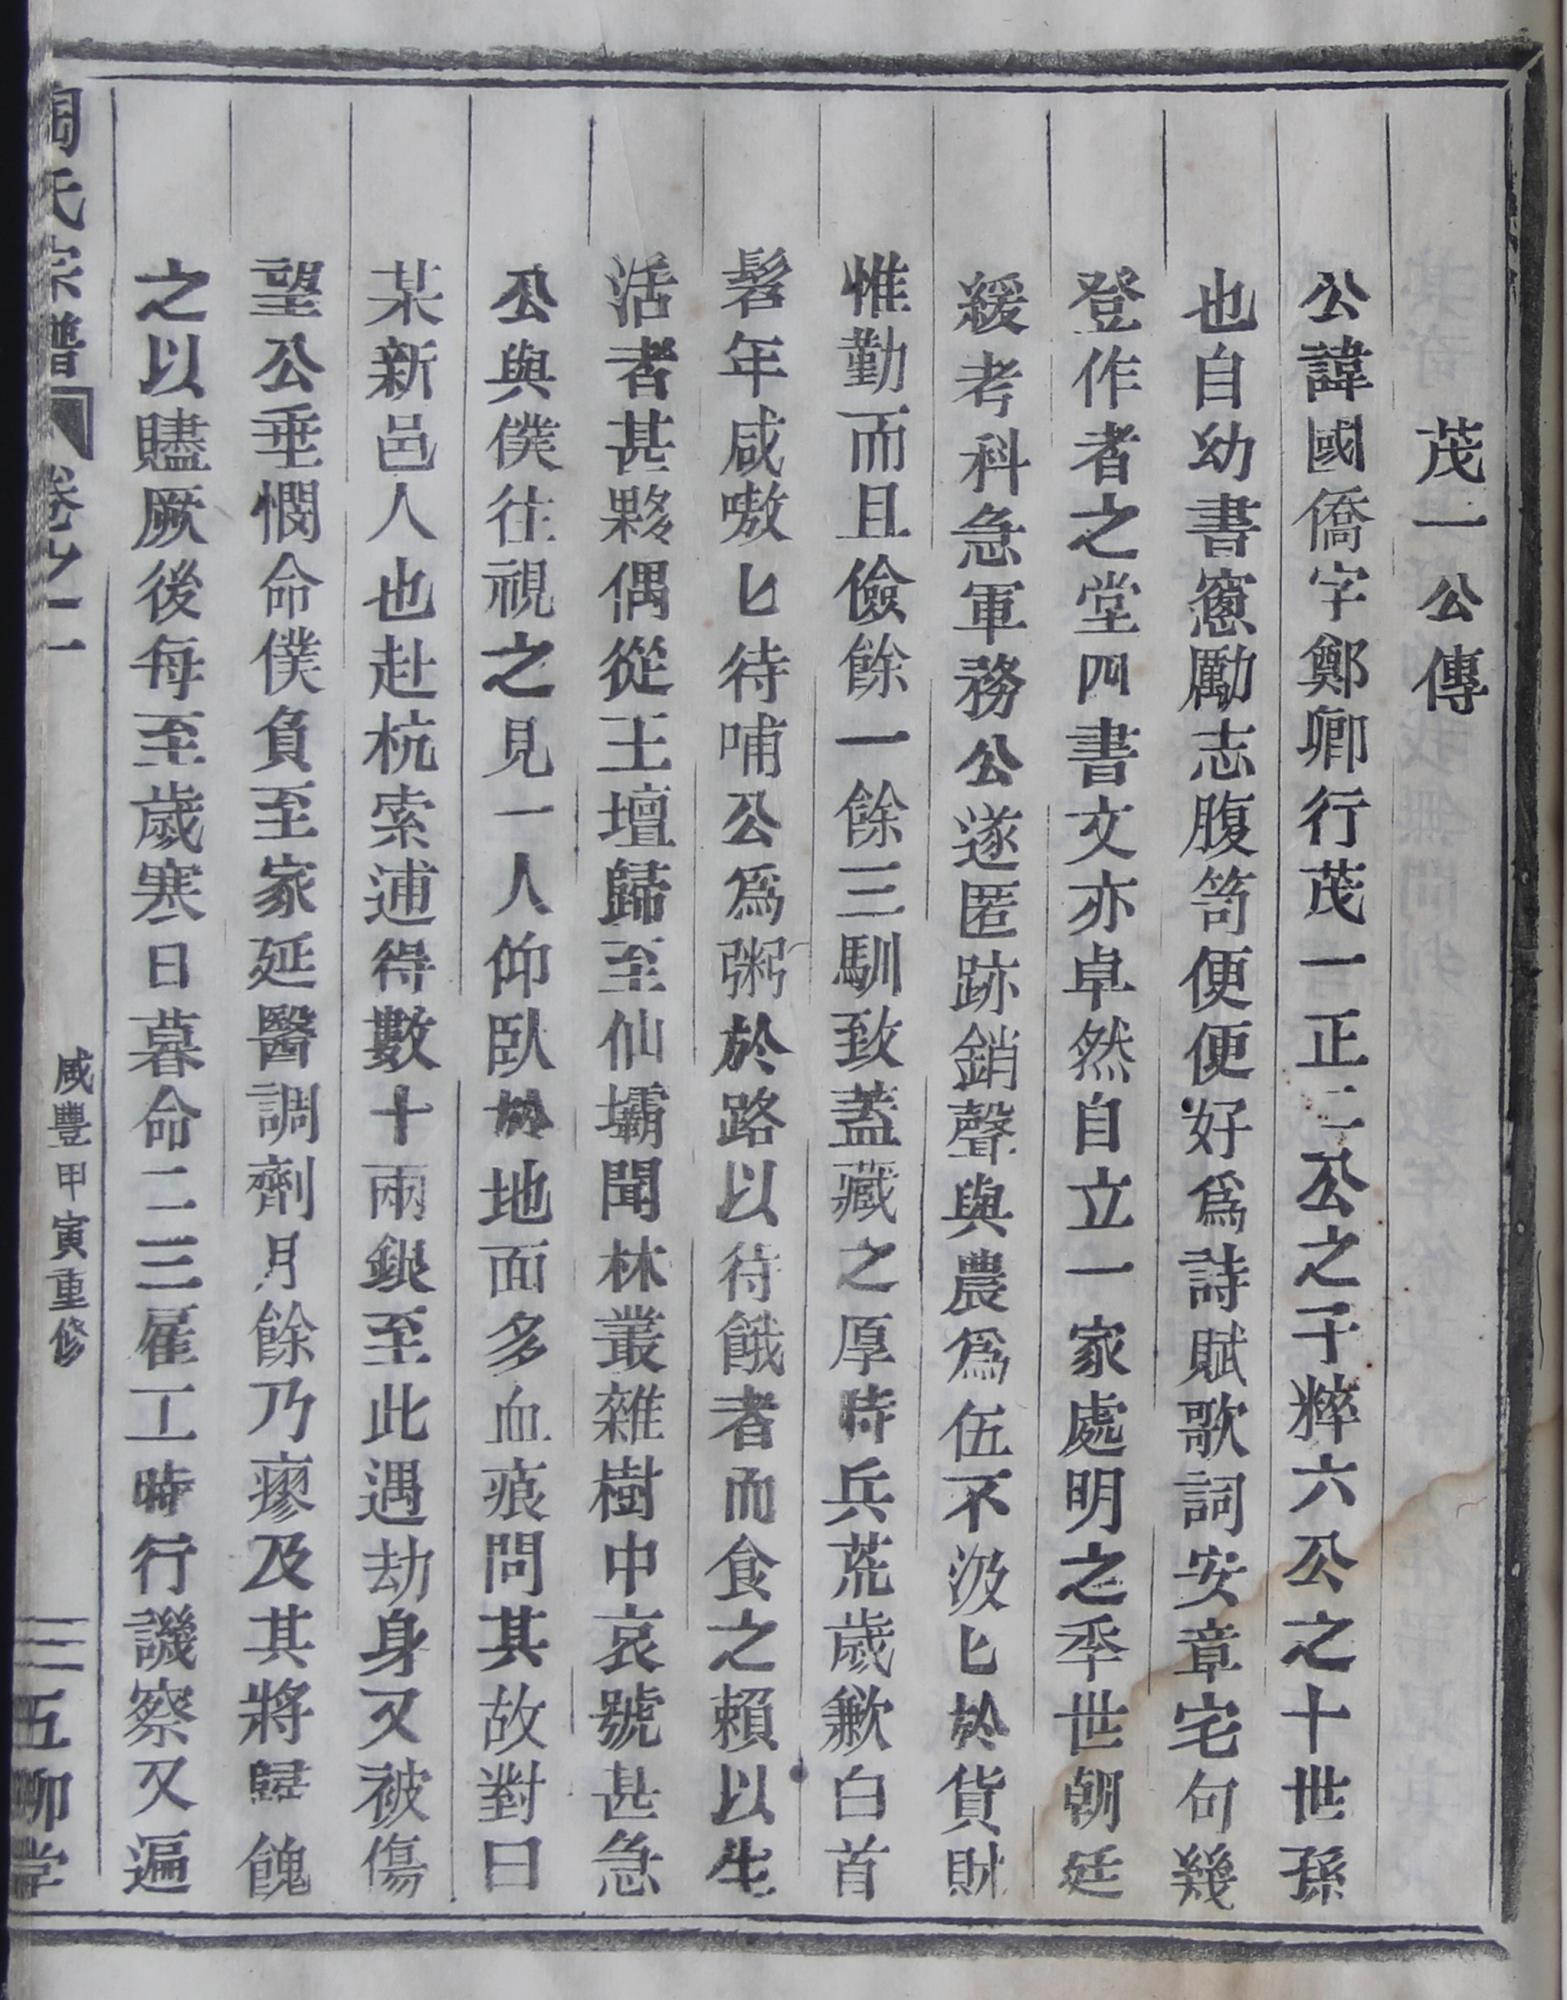 茂一公傳
公諱國僑字鄭卿行茂一正二公之子粹六公之十世孫
也自幼書窻勵志腹笥便便好爲詩賦歌詞安章宅句幾
登作者之堂四書文亦卓然自立一家處明之季世朝廷
緩考科急軍務公遂匿跡銷聲與農爲伍不汲匕於貨財
惟勤而且儉餘一餘三馴致蓋藏之厚時兵荒歲歉白首
髫年咸嗷匕待哺公爲粥於路以待餓者而食之賴以生
活者甚夥偶從王壇歸至仙壩聞林叢雜樹中哀號甚急
公與僕往視之見一人仰臥於地面多血痕問其故對曰
某新邑人也赴杭索逋得數十兩銀至此遇劫身又被傷
望公垂憫命僕負至家延醫調劑月餘乃瘳及其將歸餽
之以贐厥後每至歲寒日暮命二三雇工時行譏察又遍
氏宗譜 卷之一 咸豐甲寅重修 三 五柳堂